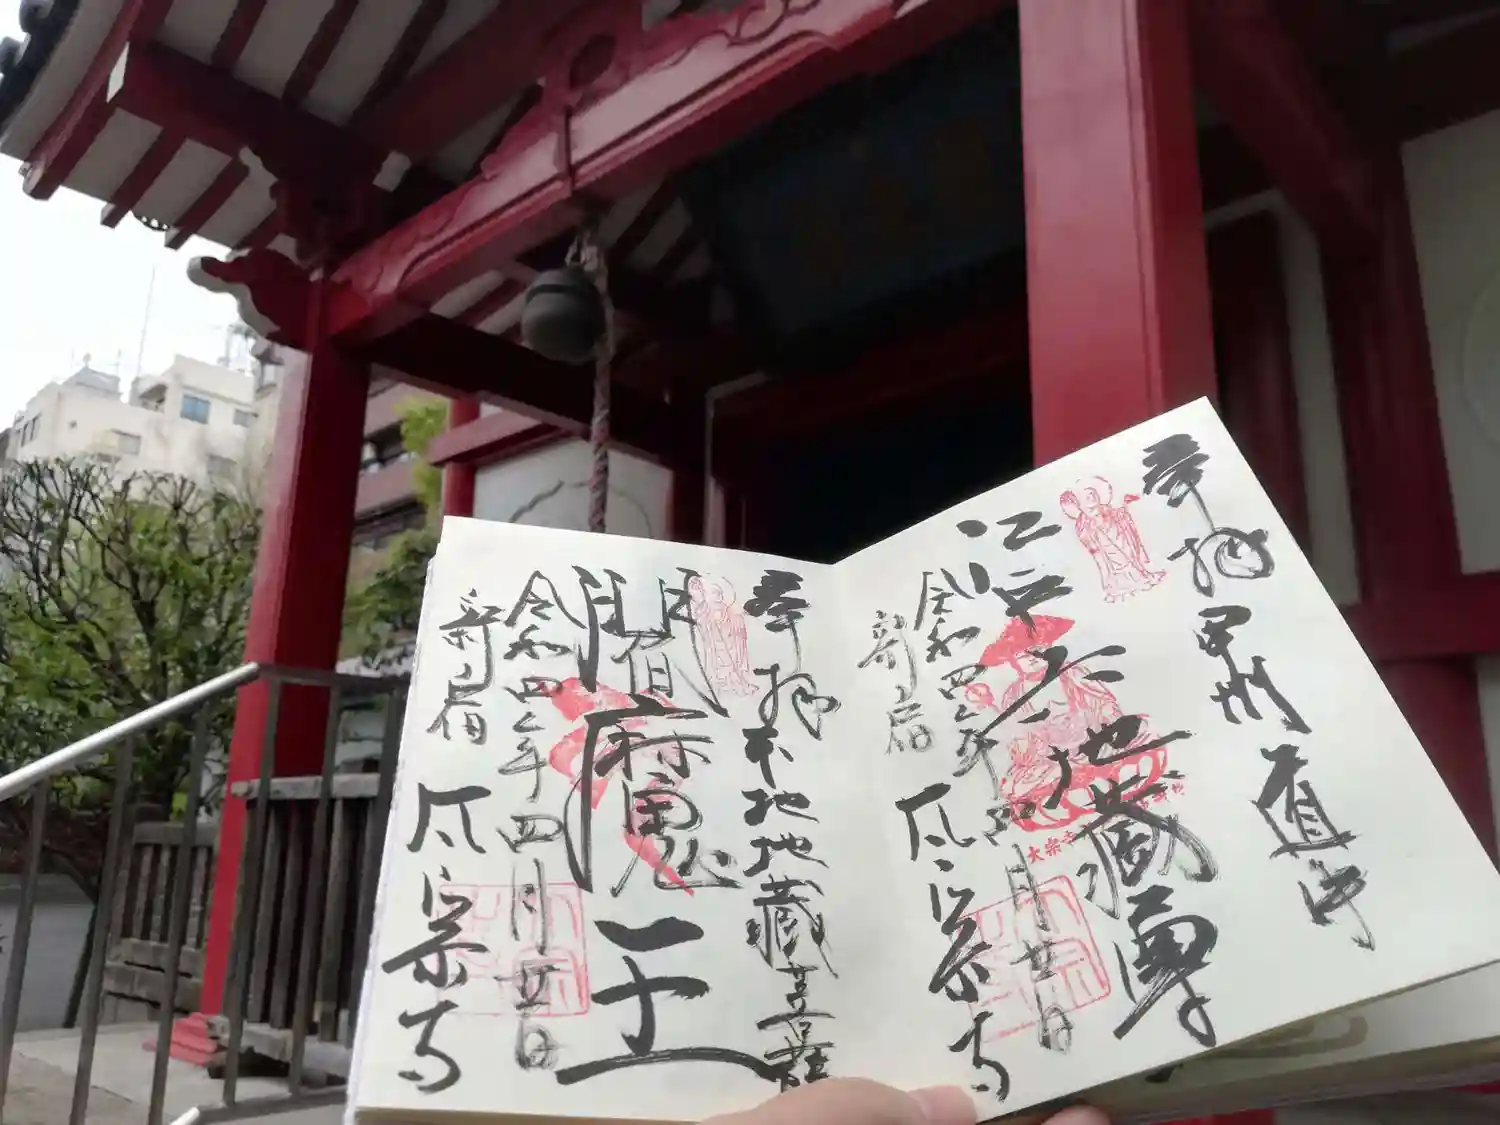 奉拝 甲州道中
江戸六地蔵尊
令和四年四月廿日
新宿
太宗寺
大宗寺
奉拝 本地地蔵菩薩
閻魔王
令和四年四月廿日
新宿
太宗寺